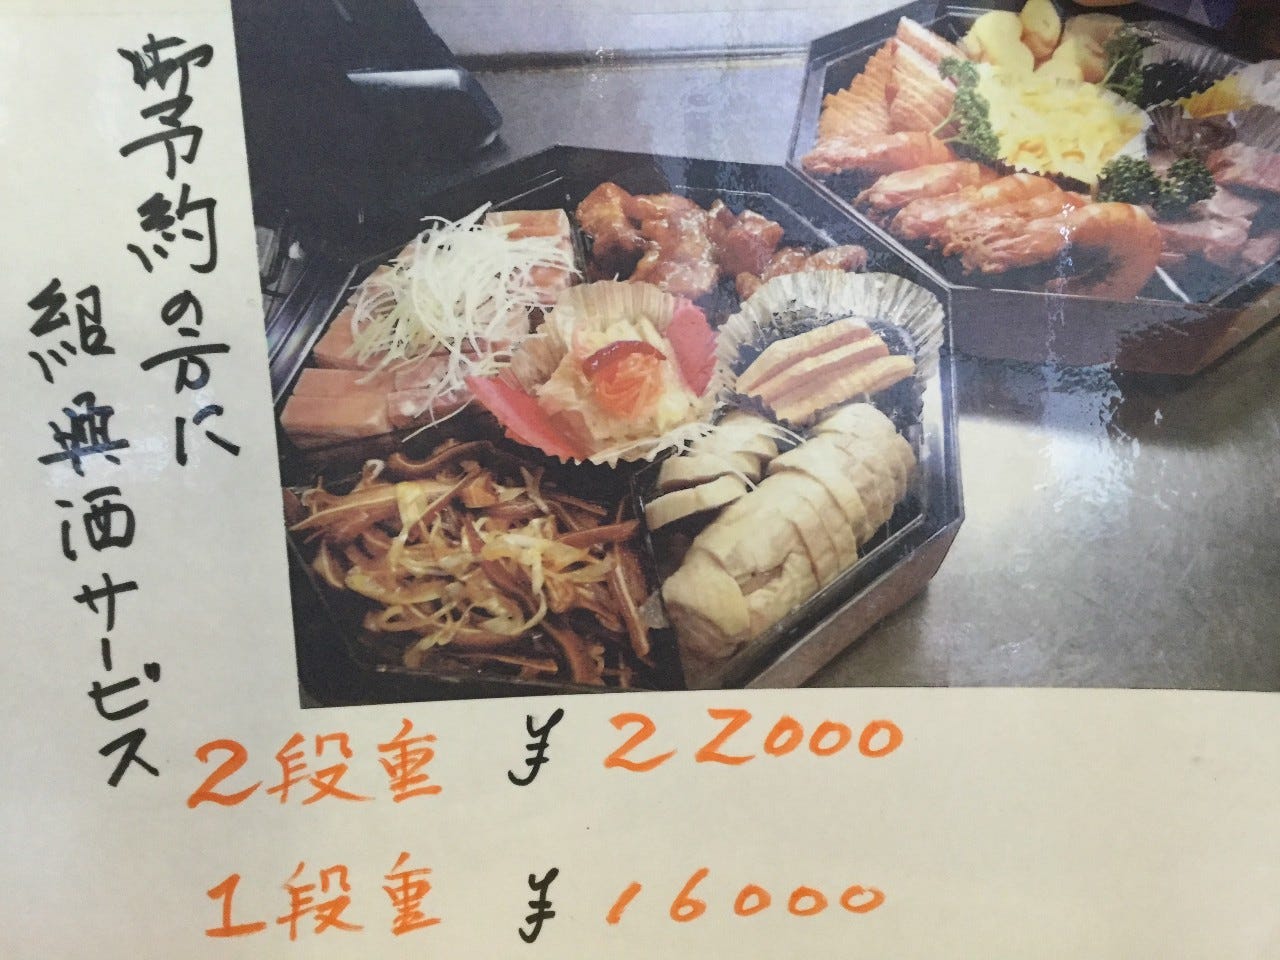 御予約の方に
紹興酒サービス
2段重 ¥22000
1段重 ¥16000